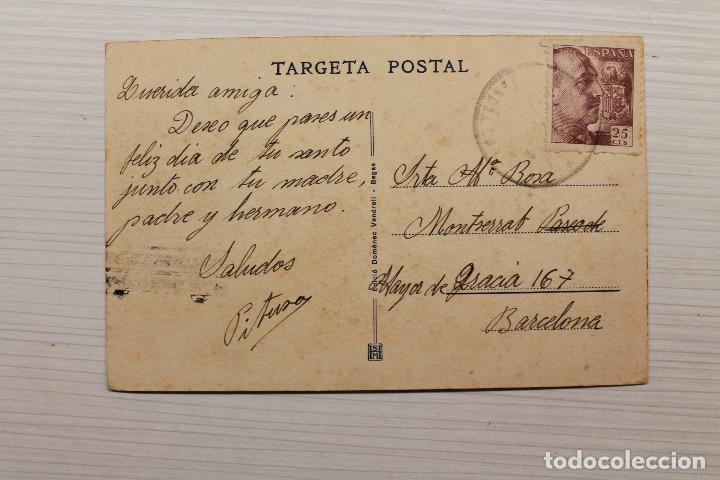 TARGETA POSTAL
Querida amiga:
Deseo que pases un
feliz dia de tu santo
junto con tu madre,
padre y hermano.
Saludos
Pitusa
Edició Domènec Vendrell - Begas
ESPAÑA
25
CTS
Srta Mª Rosa
Montserrat Paseo de
Mayor de Gracia 167
Barcelona
todocoleccion.net